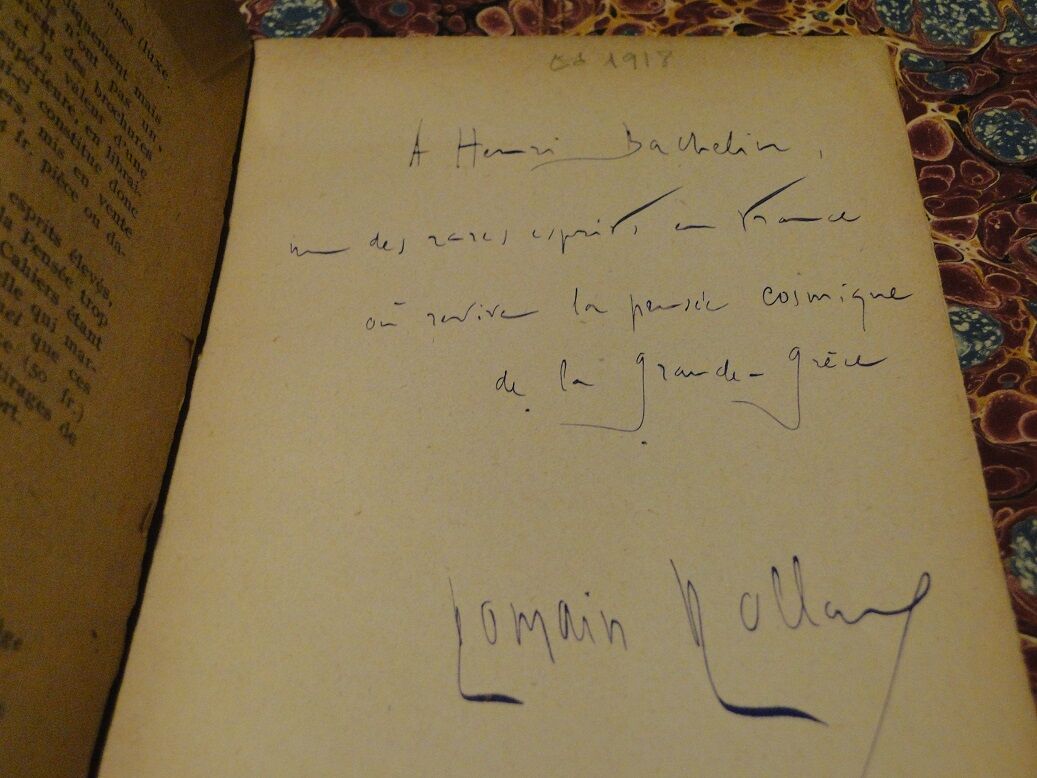 (luxe
n'ont pas un
quement mais
et la valeur d'une
it des brochures
upérieure, en librai-
ui-ci constitue donc
ers, mis en vente
fr. pièce ou da-
esprits élevés,
la Pensée trop
Cahiers étant
elle qui mar-
que ces
(50 fr.)
tirages de
ort.
Ed 1918
A Henri Bachelin,
un des rares esprits en France
où revive la pensée cosmique
de la grande-grèce
Romain Rolland